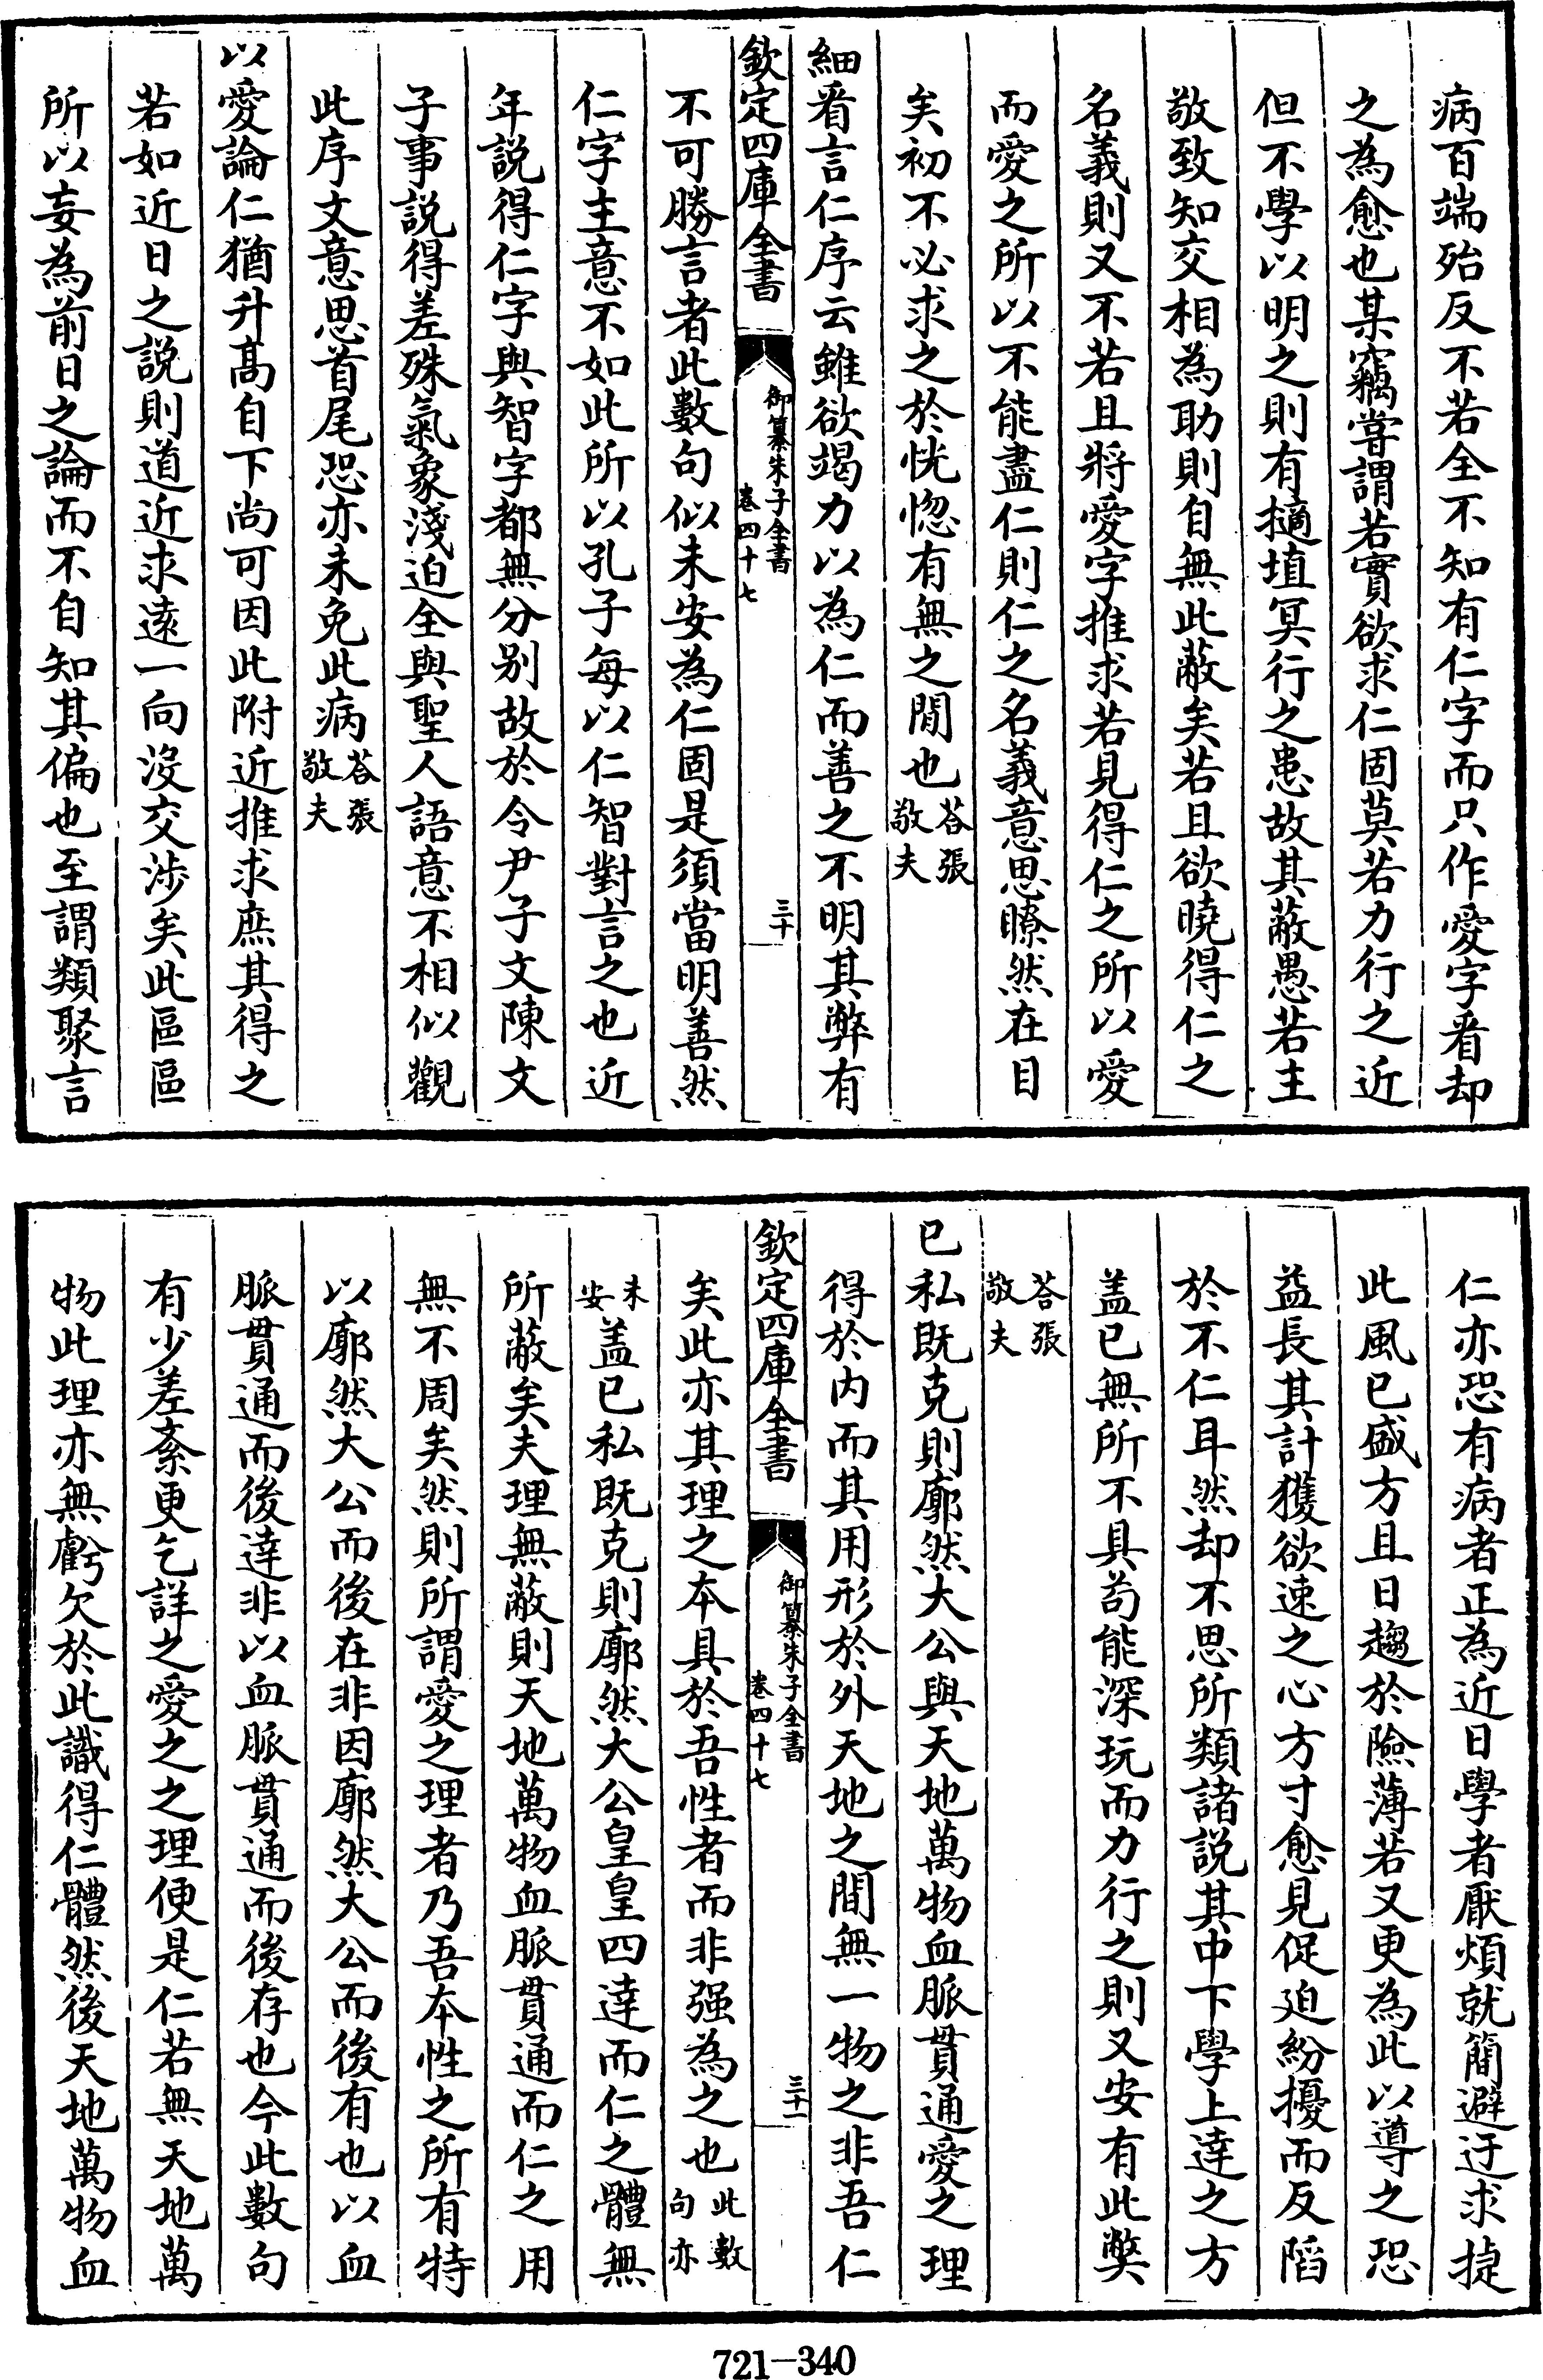 病百端殆反不若全不知有仁字而只作愛字看却
之為愈也某竊嘗謂若實欲求仁固莫若力行之近
但不學以明之則有擿埴冥行之患故其蔽愚若主
敬致知交相為助則自無此蔽矣若且欲曉得仁之
名義則又不若且將愛字推求若見得仁之所以愛
而愛之所以不能盡仁則仁之名義意思瞭然在目
矣初不必求之於恍惚有無之間也荅張敬夫
細看言仁序云雖欲竭力以為仁而善之不明其弊有
欽定四庫全書 御纂朱子全書 卷四十七 三十
不可勝言者此數句似未安為仁固是須當明善然
仁字主意不如此所以孔子每以仁智對言之也近
年説得仁字與智字都無分别故於令尹子文陳文
子事説得差殊氣象淺迫全與聖人語意不相似觀
此序文意思首尾恐亦未免此病荅張敬夫
以愛論仁猶升髙自下尚可因此附近推求庶其得之
若如近日之説則道近求逺一向没交涉矣此區區
所以妄為前日之論而不自知其偏也至謂類聚言
仁亦恐有病者正為近日學者厭煩就簡避迂求捷
此風已盛方且日趨於險薄若又更為此以導之恐
益長其計獲欲速之心方寸愈見促迫紛擾而反陷
於不仁耳然却不思所類諸説其中下學上達之方
盖已無所不具苟能深玩而力行之則又安有此弊
荅張敬夫
已私既克則廓然大公與天地萬物血脈貫通愛之理
得於内而其用形於外天地之間無一物之非吾仁
欽定四庫全書 御纂朱子全書 卷四十七 三十一
矣此亦其理之本具於吾性者而非强為之也此數句亦
未安盖已私既克則廓然大公皇皇四達而仁之體無
所蔽矣夫理無蔽則天地萬物血脈貫通而仁之用
無不周矣然則所謂愛之理者乃吾本性之所有特
以廓然大公而後在非因廓然大公而後有也以血
脈貫通而後達非以血脈貫通而後存也今此數句
有少差紊更乞詳之愛之之理便是仁若無天地萬
物此理亦無虧欠於此識得仁體然後天地萬物血
721—340